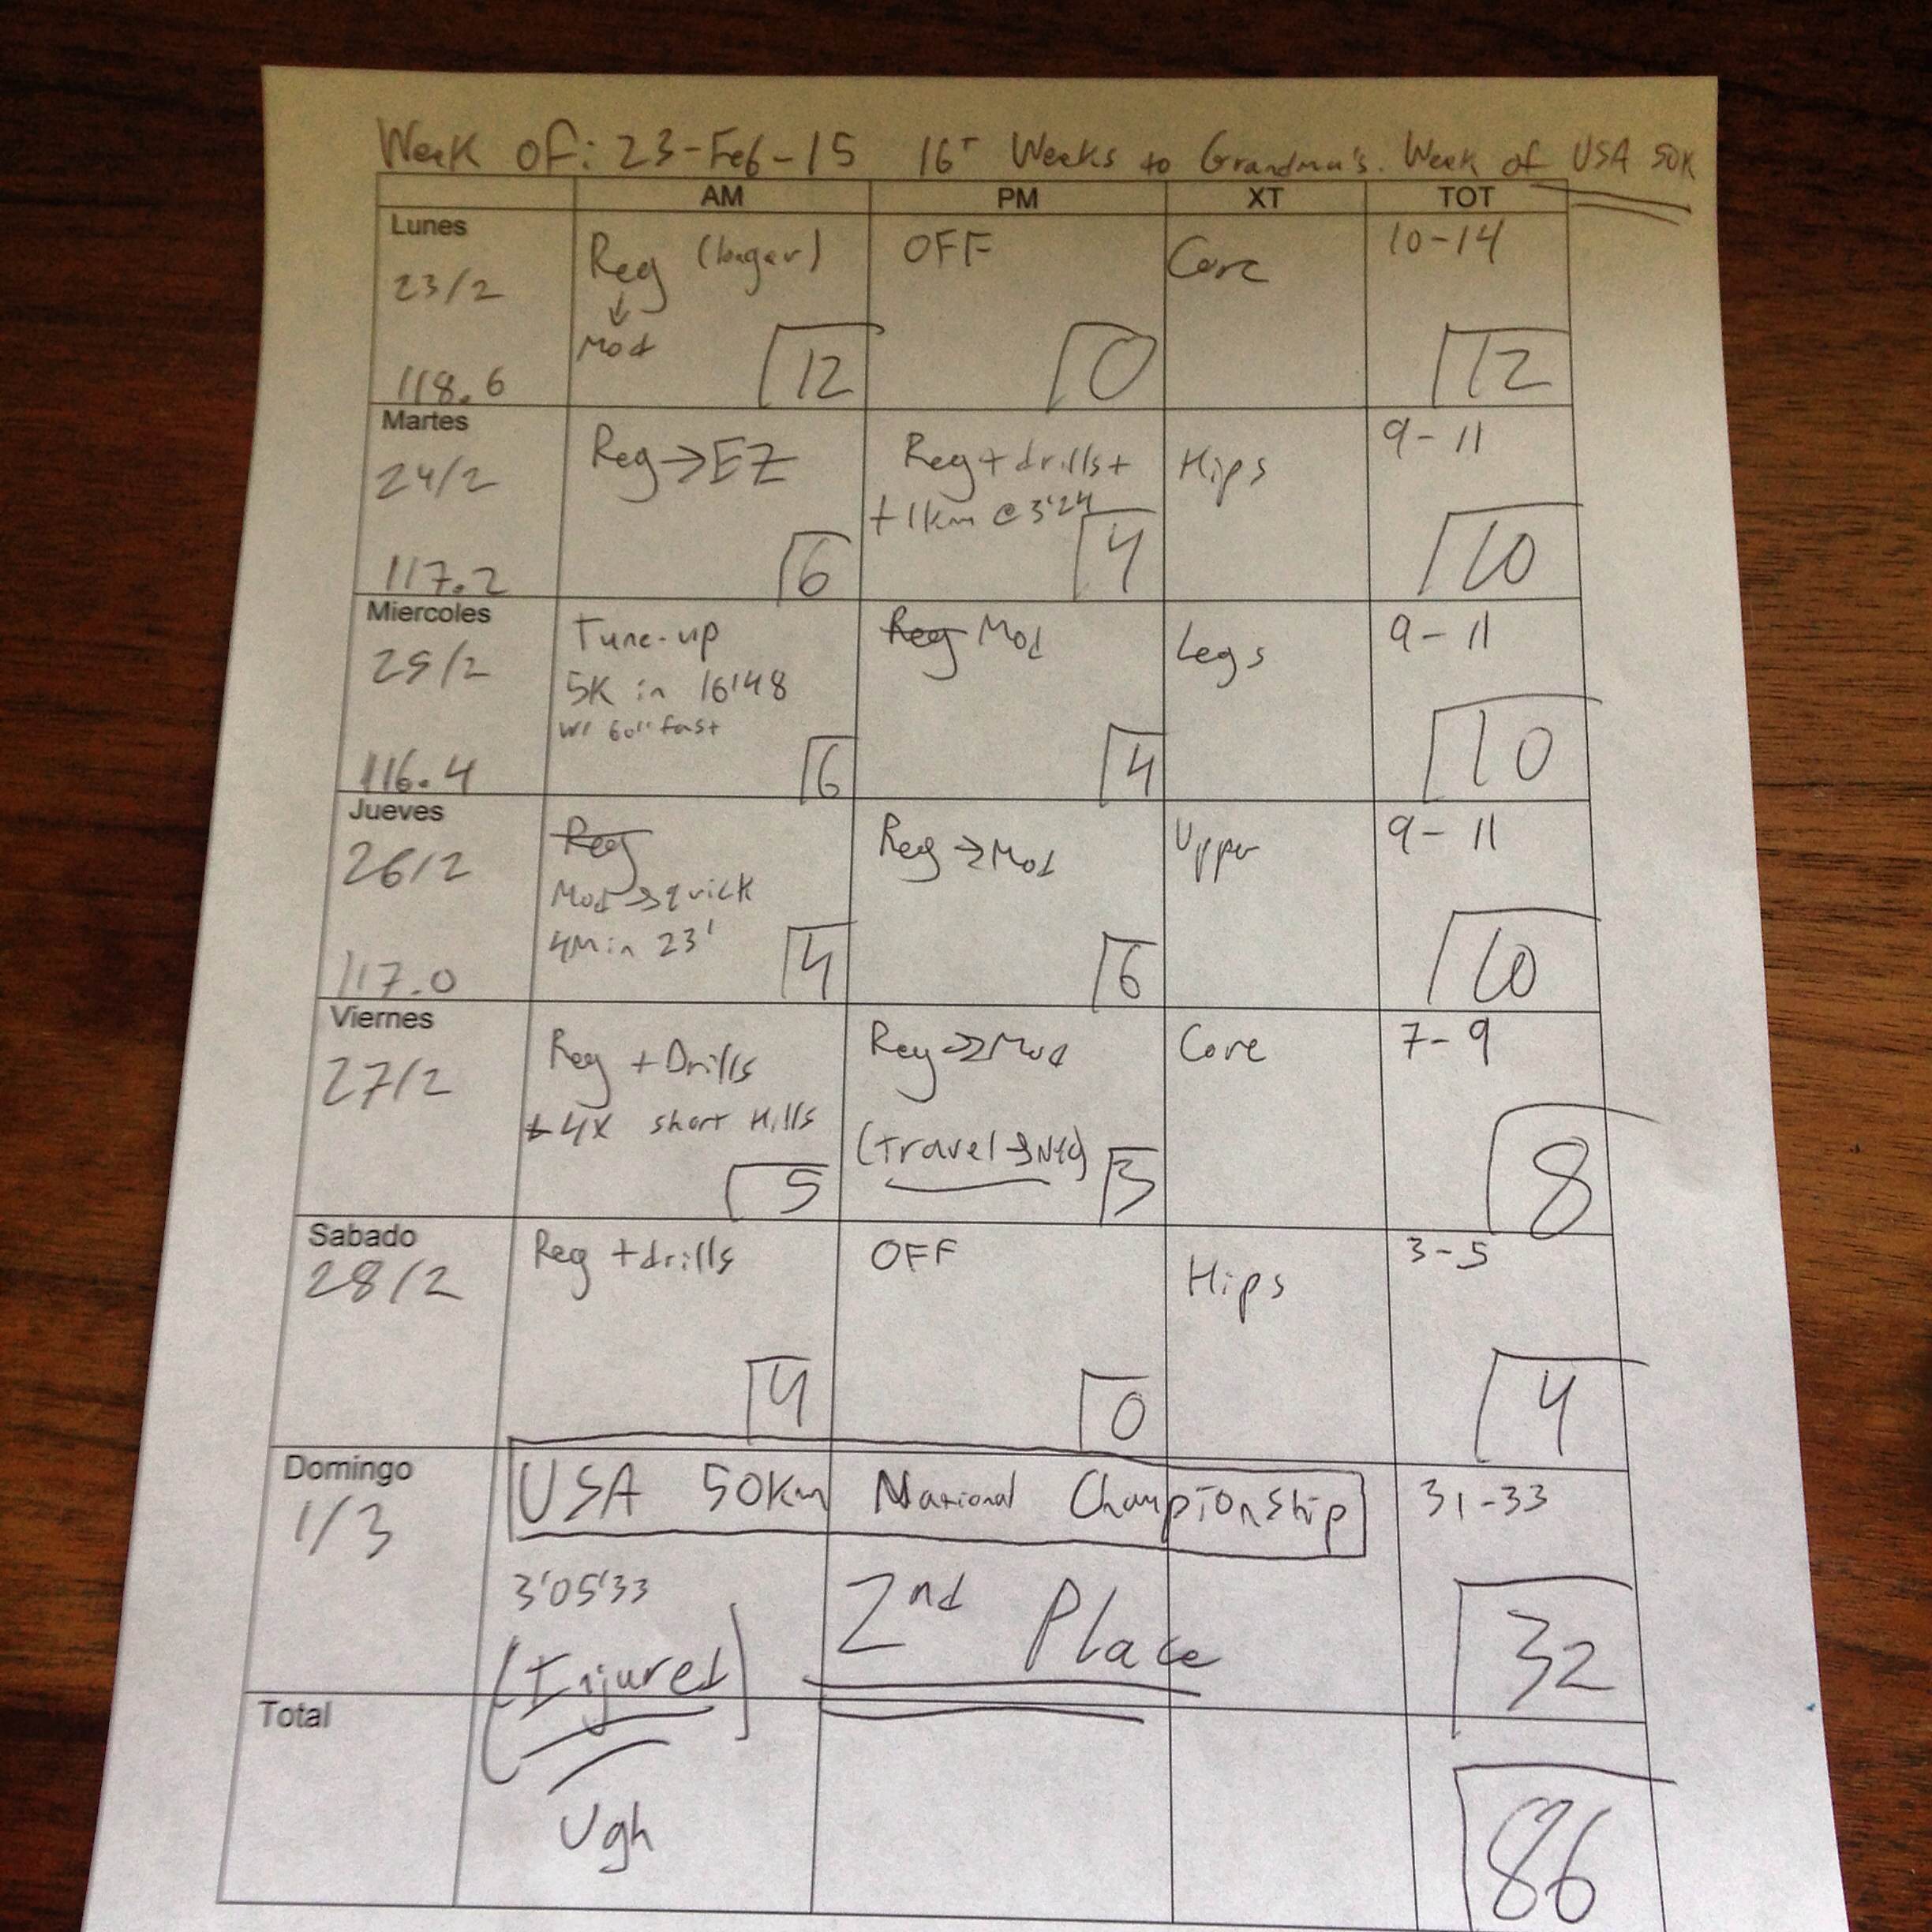 Week of: 23-Feb-15 16+ Weeks to Grandma's. Week of USA 50K
AM PM XT TOT
Lunes
23/2
118.6
Reg (longer)
↓
Mod
12
OFF
0
Core
10-14
12
Martes
24/2
117.2
Reg→EZ
6
Reg+drills+
+1km @ 3'24
4
Hips
9-11
10
Miercoles
25/2
116.4
Tune-up
5K in 16'48
w/ 60" fast
6
Reg Mod
4
Legs
9-11
10
Jueves
26/2
117.0
Reg
Mod→quick
4M in 23'
4
Reg→Mod
6
Upper
9-11
10
Viernes
27/2
Reg +Drills
+4x short Hills
5
Reg→Mod
(travel→NYC)
3
Core
7-9
8
Sabado
28/2
Reg +drills
4
OFF
0
Hips
3-5
4
Domingo
1/3
USA 50km National Championship
3'05'33
(Injured)
Ugh
2nd Place
31-33
32
Total
86